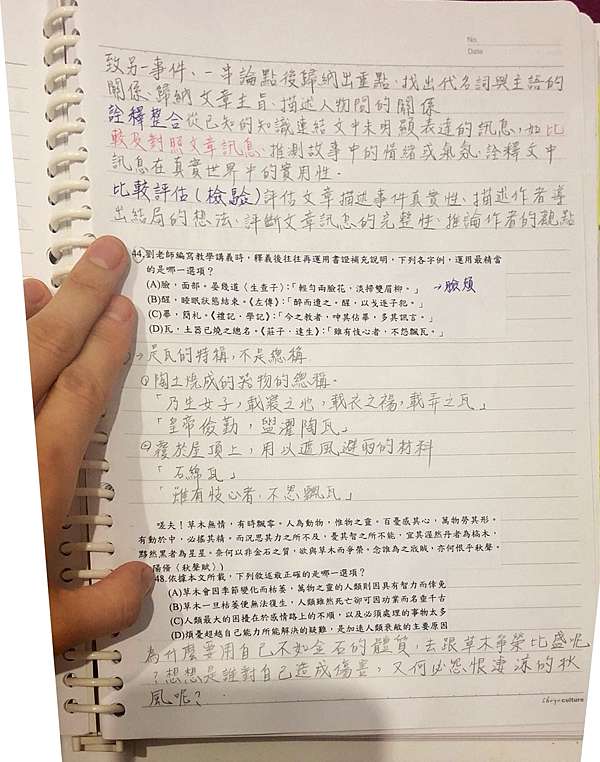 No.
Date
致另一事件、一串論點後歸納出重點、找出代名詞與主語的
關係、歸納文章主旨、描述人物間的關係
詮釋整合從已知的知識連結文中未明顯表達的訊息,如比
較及對照文章訊息、推測故事中的情緒或氣氛、詮釋文中
訊息在真實世界中的實用性。
比較評估(檢驗)評估文章描述事件真實性、描述作者導
出結局的想法、評斷文章訊息的完整性、推論作者的觀點
44.劉老師編寫教學講義時,釋義後往往再運用書證補充說明,下列各字例,運用最精當
的是哪一選項?
(A)臉,面部。晏幾道〈生查子〉:「輕勻兩臉花,淡掃雙眉柳。」 →臉頰
(B)醒,睡眠狀態結束。《左傳》:「醉而遣之。醒,以戈逐子犯。」
(C)畢,簡札。《禮記.學記》:「今之教者,呻其佔畢,多其訊言。」
(D)瓦,土器已燒之總名。《莊子.達生》:「雖有忮心者,不怨飄瓦。」
→是瓦的特稱,不是總稱
陶土燒成的器物的總稱。
「乃生女子,載寢之地,載衣之裼,載弄之瓦」
「皇帝儉勤,盥濯陶瓦」
覆於屋頂上,用以遮風避雨的材料
「石綿瓦」
「雖有忮心者,不怨飄瓦」
嗟夫!草木無情,有時飄零。人為動物,惟物之靈。百憂感其心,萬物勞其形。
有動於中,必搖其精。而況思其力之所不及,憂其智之所不能,宜其渥然丹者為槁木,
黟然黑者為星星。奈何以非金石之質,欲與草木而爭榮。念誰為之戕賊,亦何恨乎秋聲。
陽脩〈秋聲賦〉)
48.依據本文所載,下列敘述最正確的是哪一選項?
(A)草木會因季節變化而枯萎,萬物之靈的人類則因具有智力而倖免
(B)草木一旦枯萎便無法復生,人類雖然死亡卻可因功業而名垂千古
(C)人類最大的困擾在於感情路上的不順,以及必須處理的事物太多
(D)煩憂超越自己能力所能解決的疑難,是加速人類衰敗的主要原因
為什麼要用自己不如金石的體質,去跟草木爭榮比盛呢
?想想是誰對自己造成傷害,又何必怨恨淒涼的秋
風呢?
culture